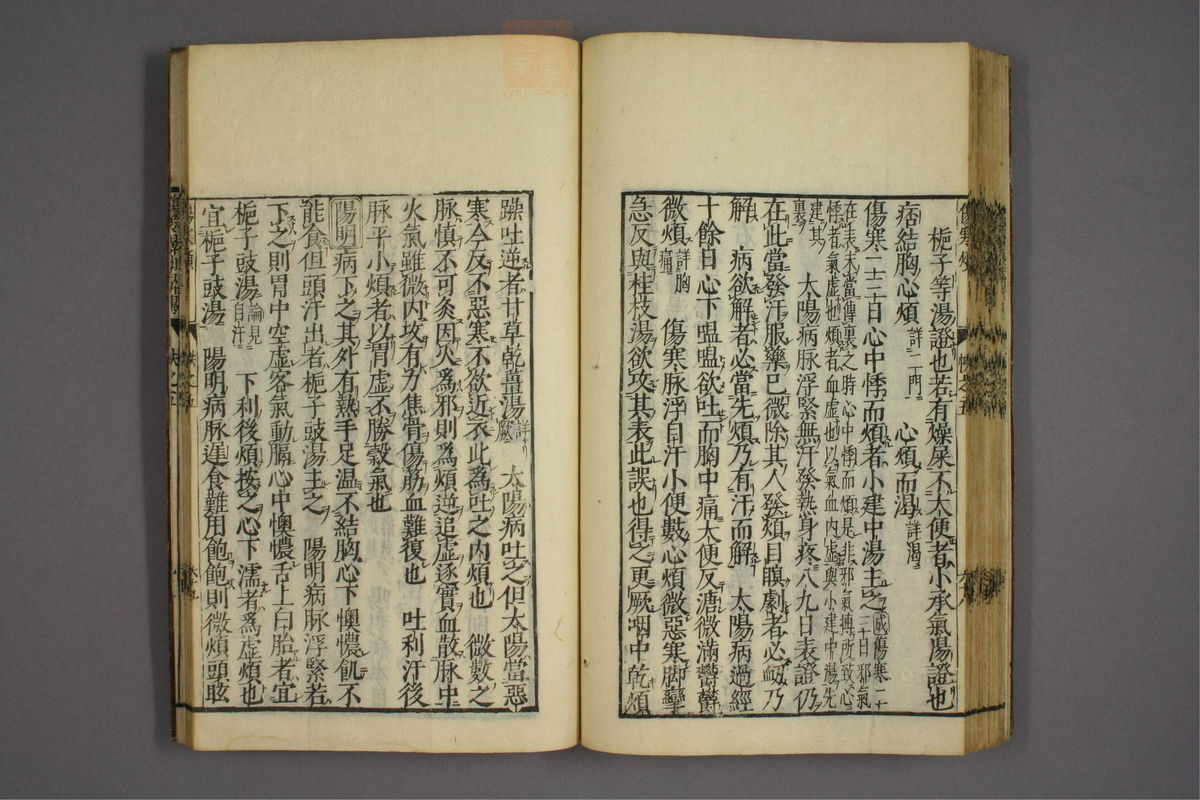 梔子等湯證也若有燥屎不大便者小承氣湯證也
痞結胸心煩詳二門 心煩而渴詳渴
傷寒二三日心中悸而煩者小建中湯主之成傷寒二三日邪氣
在表未當傳裏之時心中悸而煩是非邪氣搏所致心
悸者氣虛也煩者血虛也以氣血內虛與小建中湯先
建其裏 太陽病脉浮緊無汗發熱身疼八九日表證仍
在此當發汗服藥已微除其人發煩目瞑劇者必衂乃
解 病欲解者必當先煩乃有汗而解 太陽病過經
十餘日心下嗢嗢欲吐而胸中痛大便反溏微滿鬱鬱
微煩詳胸痛 傷寒脉浮自汗小便數心煩微惡寒脚攣
急反與桂枝湯欲攻其表此誤也得之更厥咽中乾煩
躁吐逆者甘草乾薑湯詳厥 太陽病吐之但太陽當惡
寒今反不惡寒不欲近衣此爲吐之內煩也 微數之
脉慎不可灸因火爲邪則爲煩逆追虛逐實血散脉中
火氣雖微内攻有力焦骨傷筋血難復也 吐利汗後
脉平小煩者以胃虛不勝穀氣也
陽明病下之其外有熱手足温不結胸心下懊憹飢不
能食但頭汗出者梔子豉湯主之 陽明病脉浮緊若
下之則胃中空虛客氣動膈心中懊憹舌上白胎者宜
梔子豉湯論見自汗 下利後煩按之心下濡者爲虛煩也
宜梔子豉湯 陽明病脉遲食難用飽飽則微煩頭眩